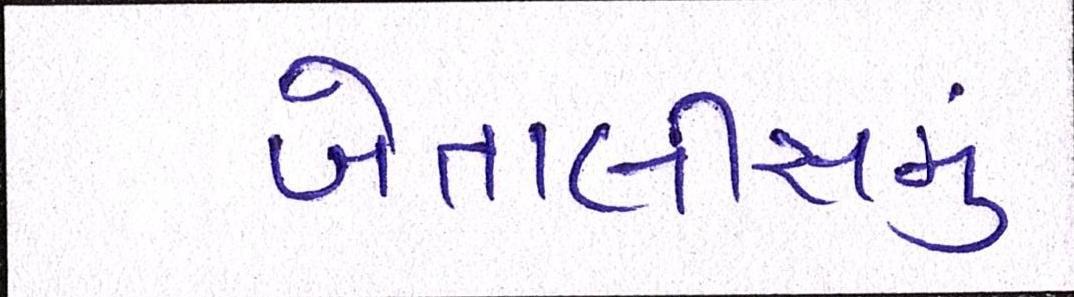 બેતાલીસમું